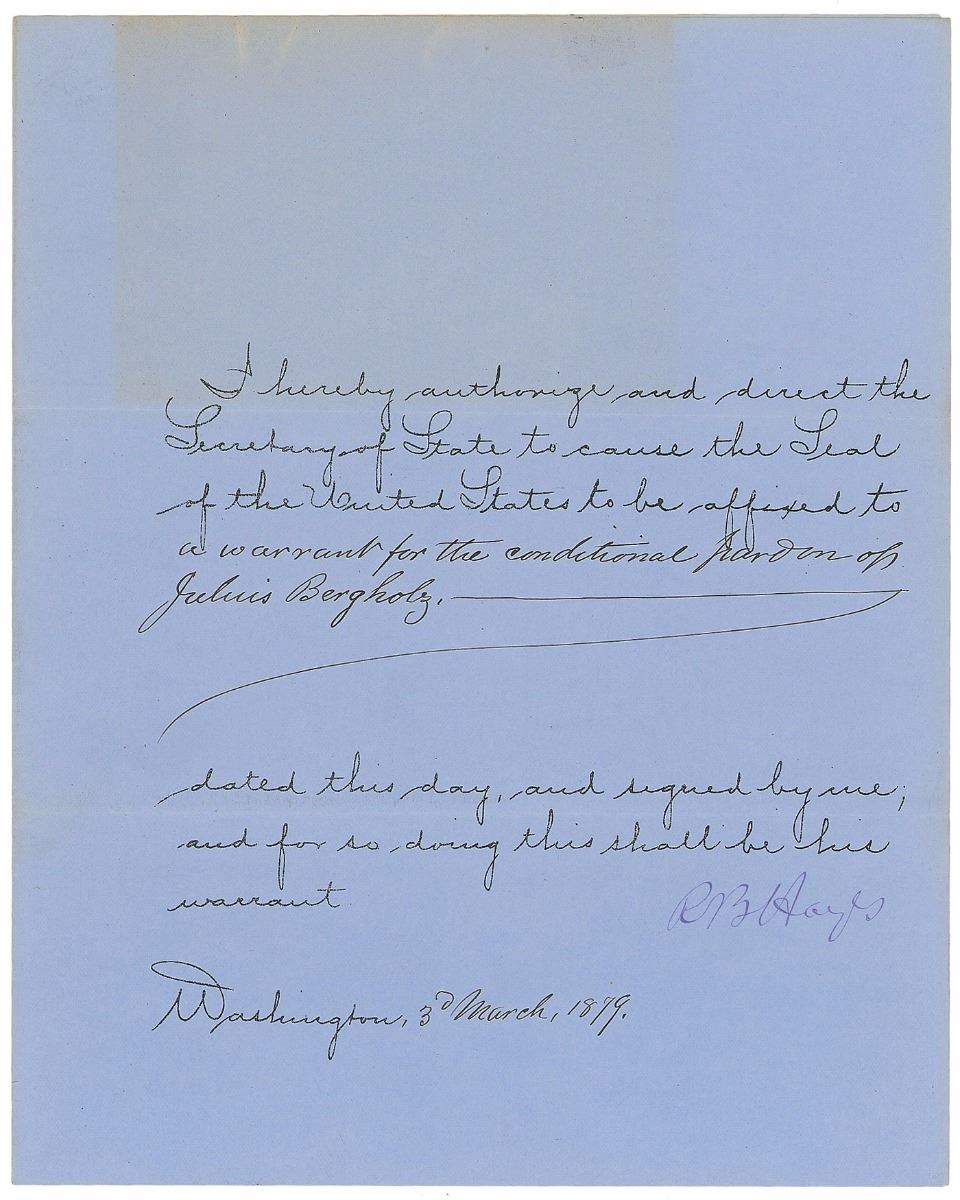 I hereby authorize and direct the
Secretary of State to cause the Seal
of the United States to be affixed to
a warrant for the conditional pardon of
Julius Bergholz.
dated this day, and signed by me;
and for so doing this shall be his
warrant
R B Hayes
Washington, 3d March, 1879.